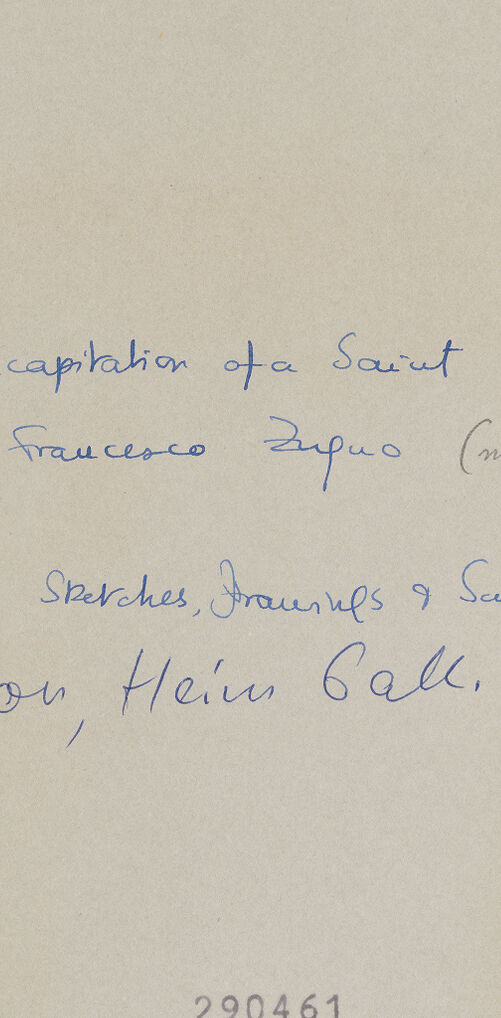 capitation of a Saint
Francesco Zugno (
Sketches, Drawings & Sc
on, Heim Gall.
290461